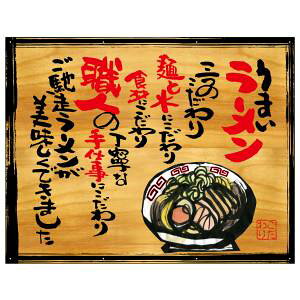 うまい
ラーメン
三つのこだわり
麺と水にこだわり
食材にこだわり
丁寧な
職人の手仕事にこだわり
ご馳走ラーメンが
美味しくできました
こだわり